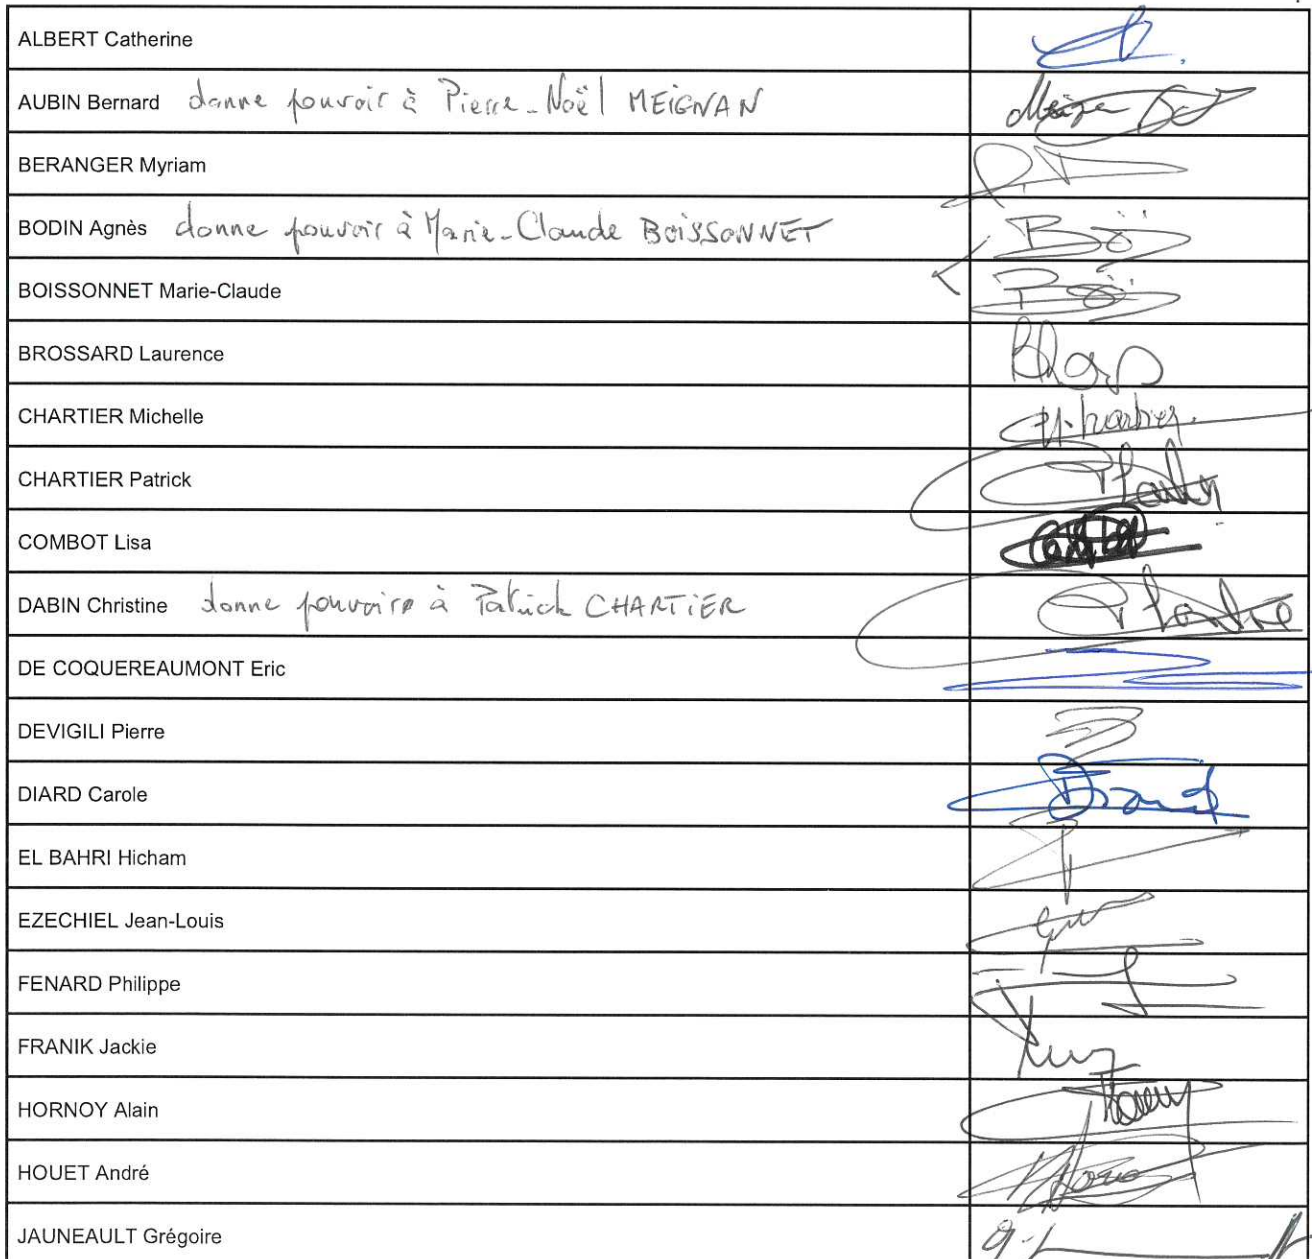 ALBERT Catherine
AUBIN Bernard donne pouvoir à Pierre-Noël MEIGNAN
BERANGER Myriam
BODIN Agnès donne pouvoir à Marie-Claude BOISSONNET
BOISSONNET Marie-Claude
BROSSARD Laurence
CHARTIER Michelle
CHARTIER Patrick
COMBOT Lisa
DABIN Christine donne pouvoire à Patrick CHARTIER
DE COQUEREAUMONT Eric
DEVIGILI Pierre
DIARD Carole
EL BAHRI Hicham
EZECHIEL Jean-Louis
FENARD Philippe
FRANIK Jackie
HORNOY Alain
HOUET André
JAUNEAULT Grégoire